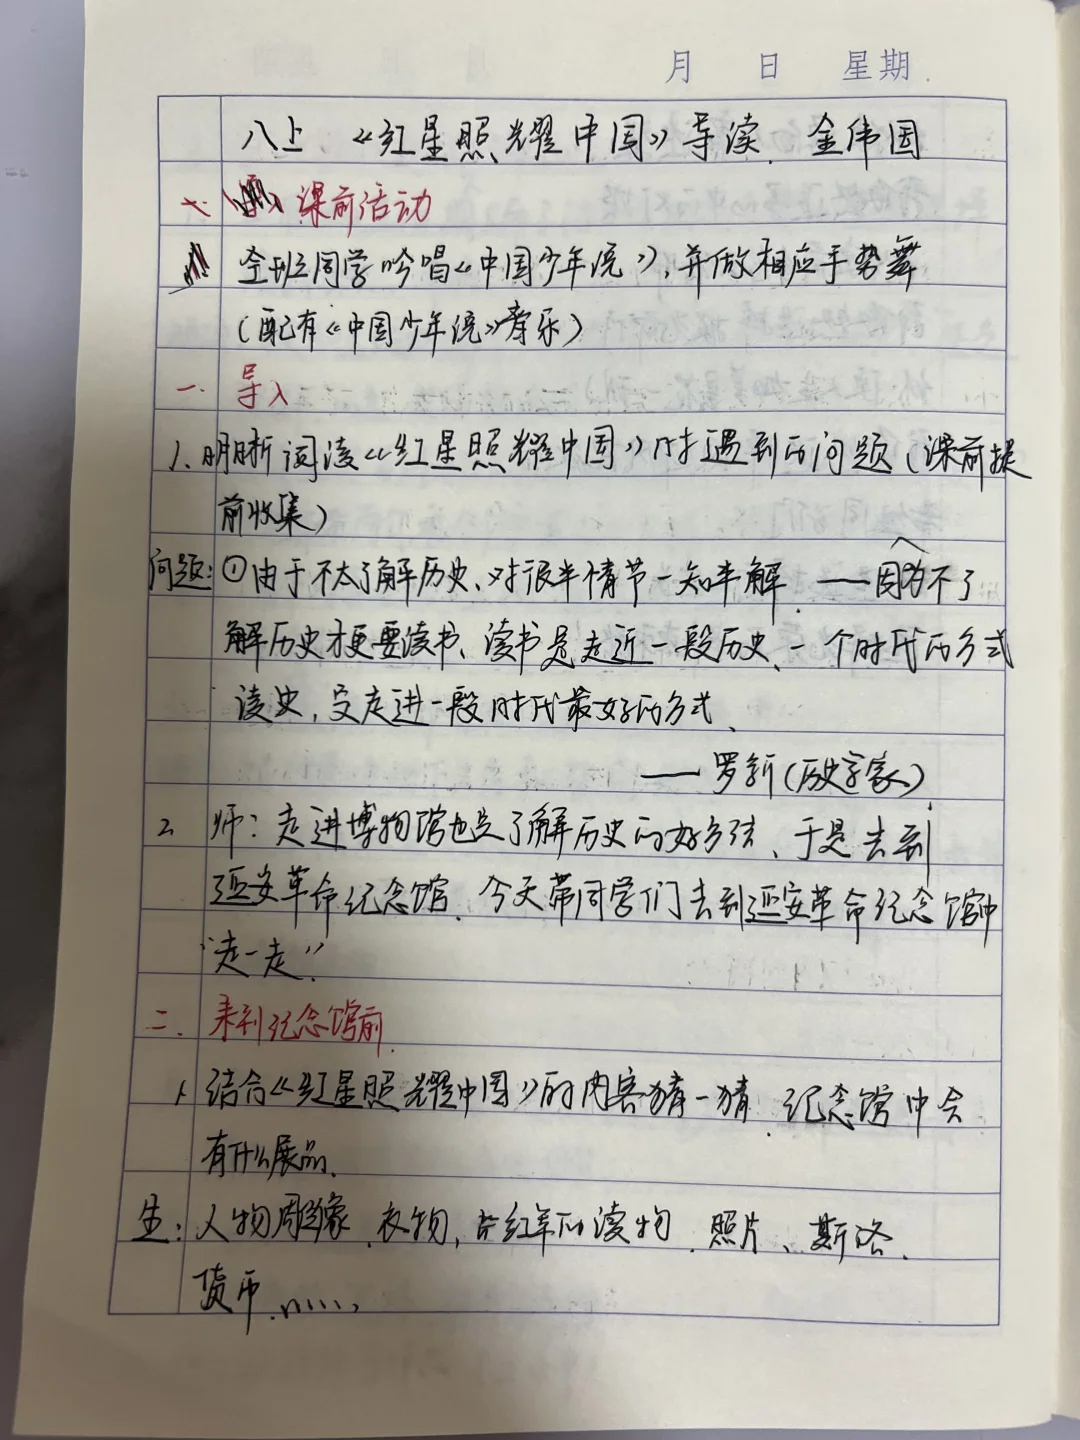 月 日 星期
八上 《红星照耀中国》导读 金伟国
课前活动
全班同学吟唱《中国少年说》，并做相应手势舞
（配有《中国少年说》音乐）
一、导入
1、明晰阅读《红星照耀中国》时遇到的问题（课前提
前收集）
问题：①由于不太了解历史、对很多情节一知半解 ——因为不了
解历史才更要读书、读书是走近一段历史、一个时代的方式
读史，是走进一段时代最好的方式、
——罗新（历史学家）
2、师：走进博物馆也是了解历史的好方法、于是去到
延安革命纪念馆、今天带同学们去到延安革命纪念馆中
“走一走”
二、来到纪念馆前、
1、结合《红星照耀中国》的内容猜一猜、纪念馆中会
有什么展品、
生：人物雕像、衣物，红军的读物、照片、斯诺、
货币、……